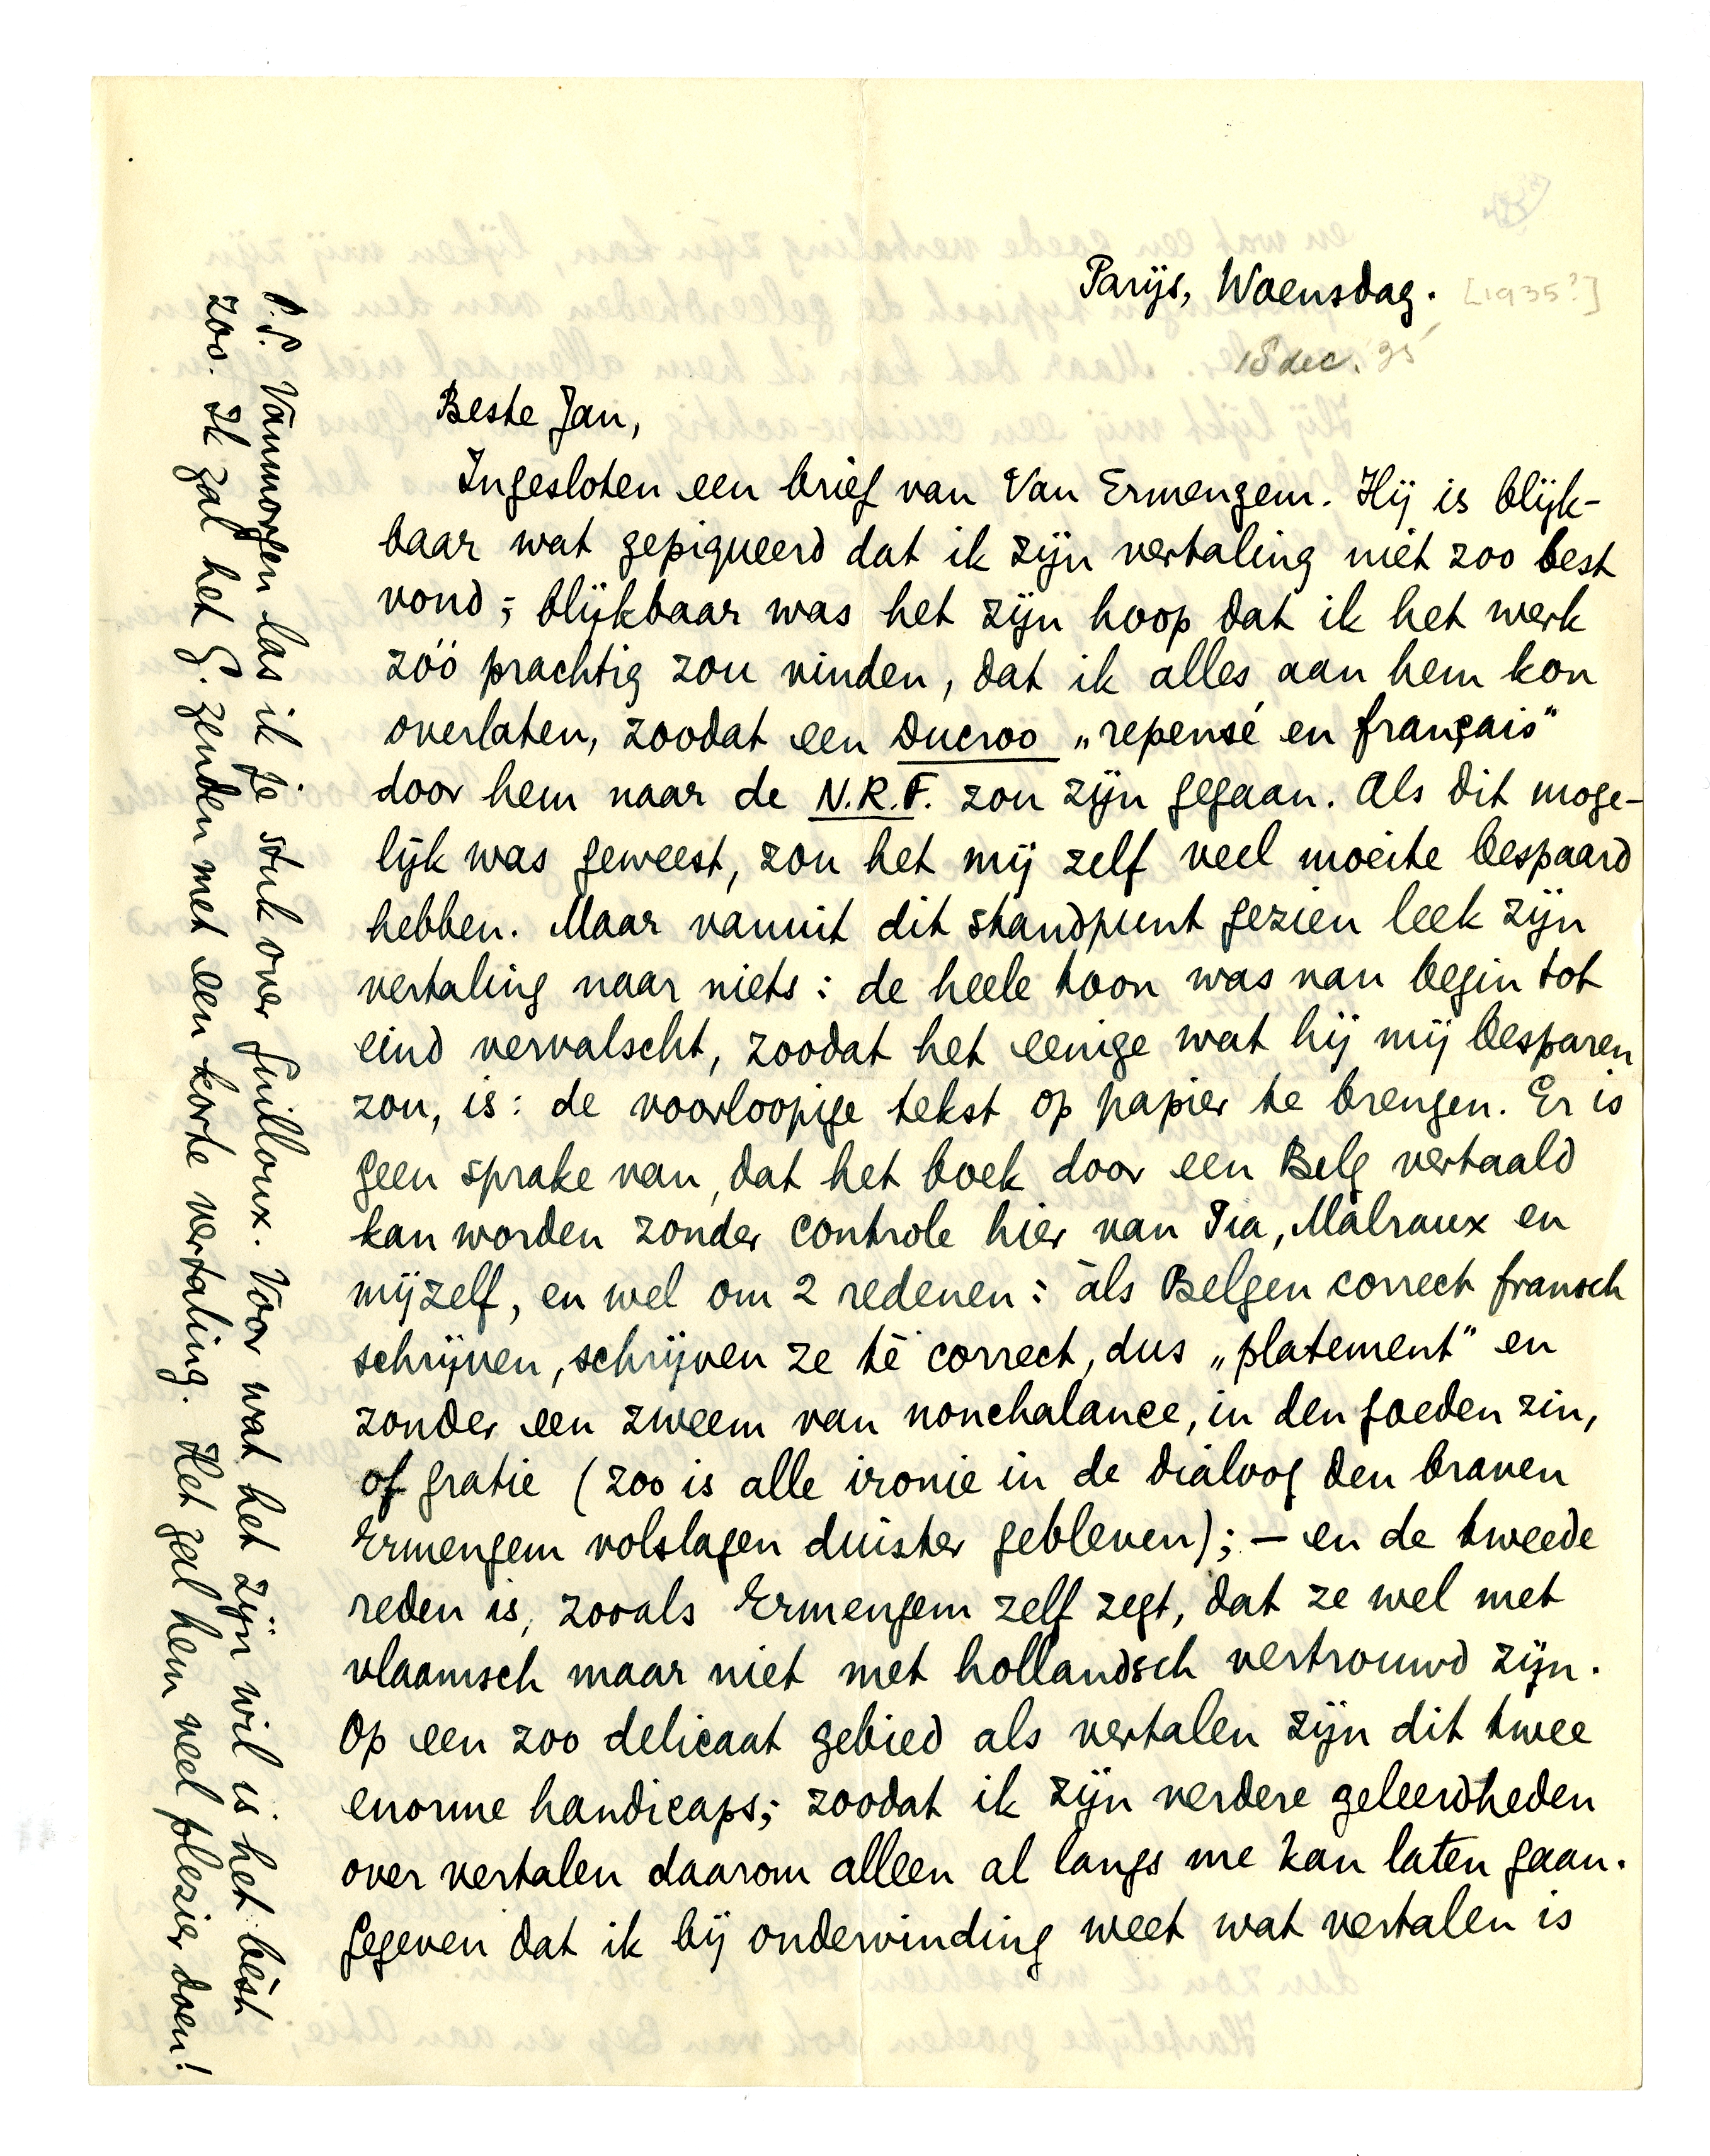 Parijs, Woensdag. [1935?]
18 dec. '35
Beste Jan,
Ingesloten een brief van Van Ermengem. Hij is blijk-
baar wat gepiqueerd dat ik zijn vertaling niet zoo best
vond; blijkbaar was het zijn hoop dat ik het werk
zóó prachtig zou vinden, dat ik alles aan hem kon
overlaten, zoodat een Ducroo „repensé en français"
door hem naar de N.R.F. zou zijn gegaan. Als dit moge-
lijk was geweest, zou het mij zelf veel moeite bespaard
hebben. Maar vanuit dit standpunt gezien leek zijn
vertaling naar niets: de heele toon was van begin tot
eind vervalscht, zoodat het eenige wat hij mij besparen
zou, is: de voorloopige tekst op papier te brengen. Er is
geen sprake van, dat het boek door een Belg vertaald
kan worden zonder controle hier van Pia, Malraux en
mijzelf, en wel om 2 redenen: àls Belgen correct fransch
schrijven, schrijven ze té correct, dus „platement" en
zonder een zweem van nonchalance, in den goeden zin,
of gratie (zoo is alle ironie in de dialoog den braven
Ermengem volslagen duister gebleven); — en de tweede
reden is, zooals Ermengem zelf zegt, dat ze wel met
vlaamsch maar niet met hollandsch vertrouwd zijn.
Op een zoo delicaat gebied als vertalen zijn dit twee
enorme handicaps; zoodat ik zijn verdere geleerdheden
over vertalen daarom alleen al langs me kan laten gaan.
Gegeven dat ik bij ondervinding weet wat vertalen is
P.S. Vanmorgen las ik je stuk over Guilloux. Voor wat het zijn wil is het bèst
zoo. Ik zal het G. zenden met een korte vertaling. Het zal hem veel plezier doen!